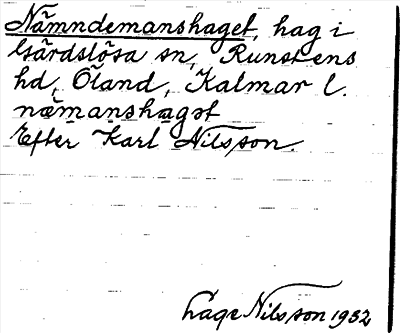 Nämndemanshaget, hag i
Gärdslösa sn, Runstens
hd, Öland, Kalmar l.
nämanshagət
Efter Karl Nilsson.
Lage Nilsson 1932